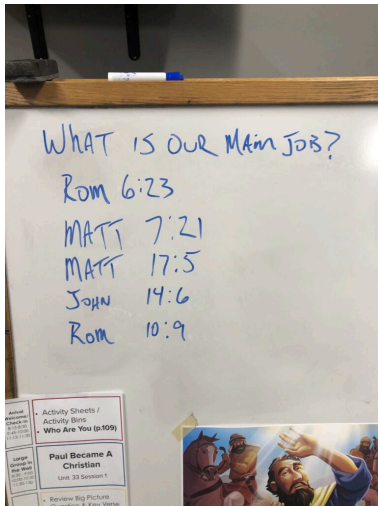 WHAT IS OUR MAIN JOB?
ROM 6:23
MATT 7:21
MATT 17:5
JOHN 14:6
ROM 10:9
Arrival
Welcome/
Check-in
• Activity Sheets /
Activity Bins
• Who Are You (p.109)
Large
Group
Paul Became A
Christian
Unit 33 Session 1
• Review Big Picture
Question & Key Verse